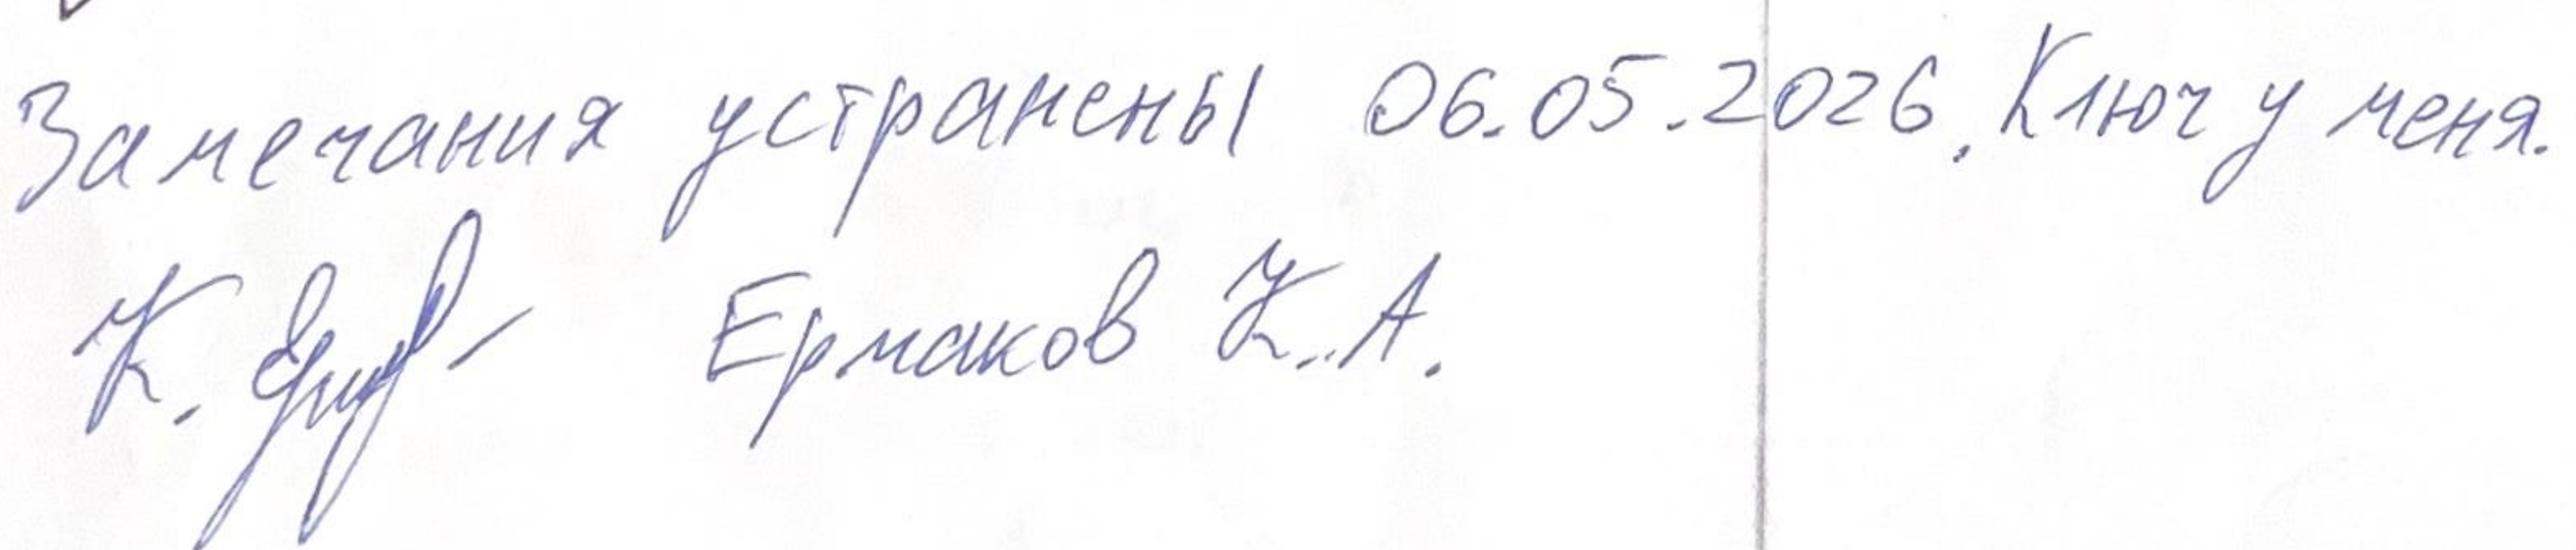 Замечания устранены 06.05.2026. Ключ у меня.
К. Ермаков К.А.